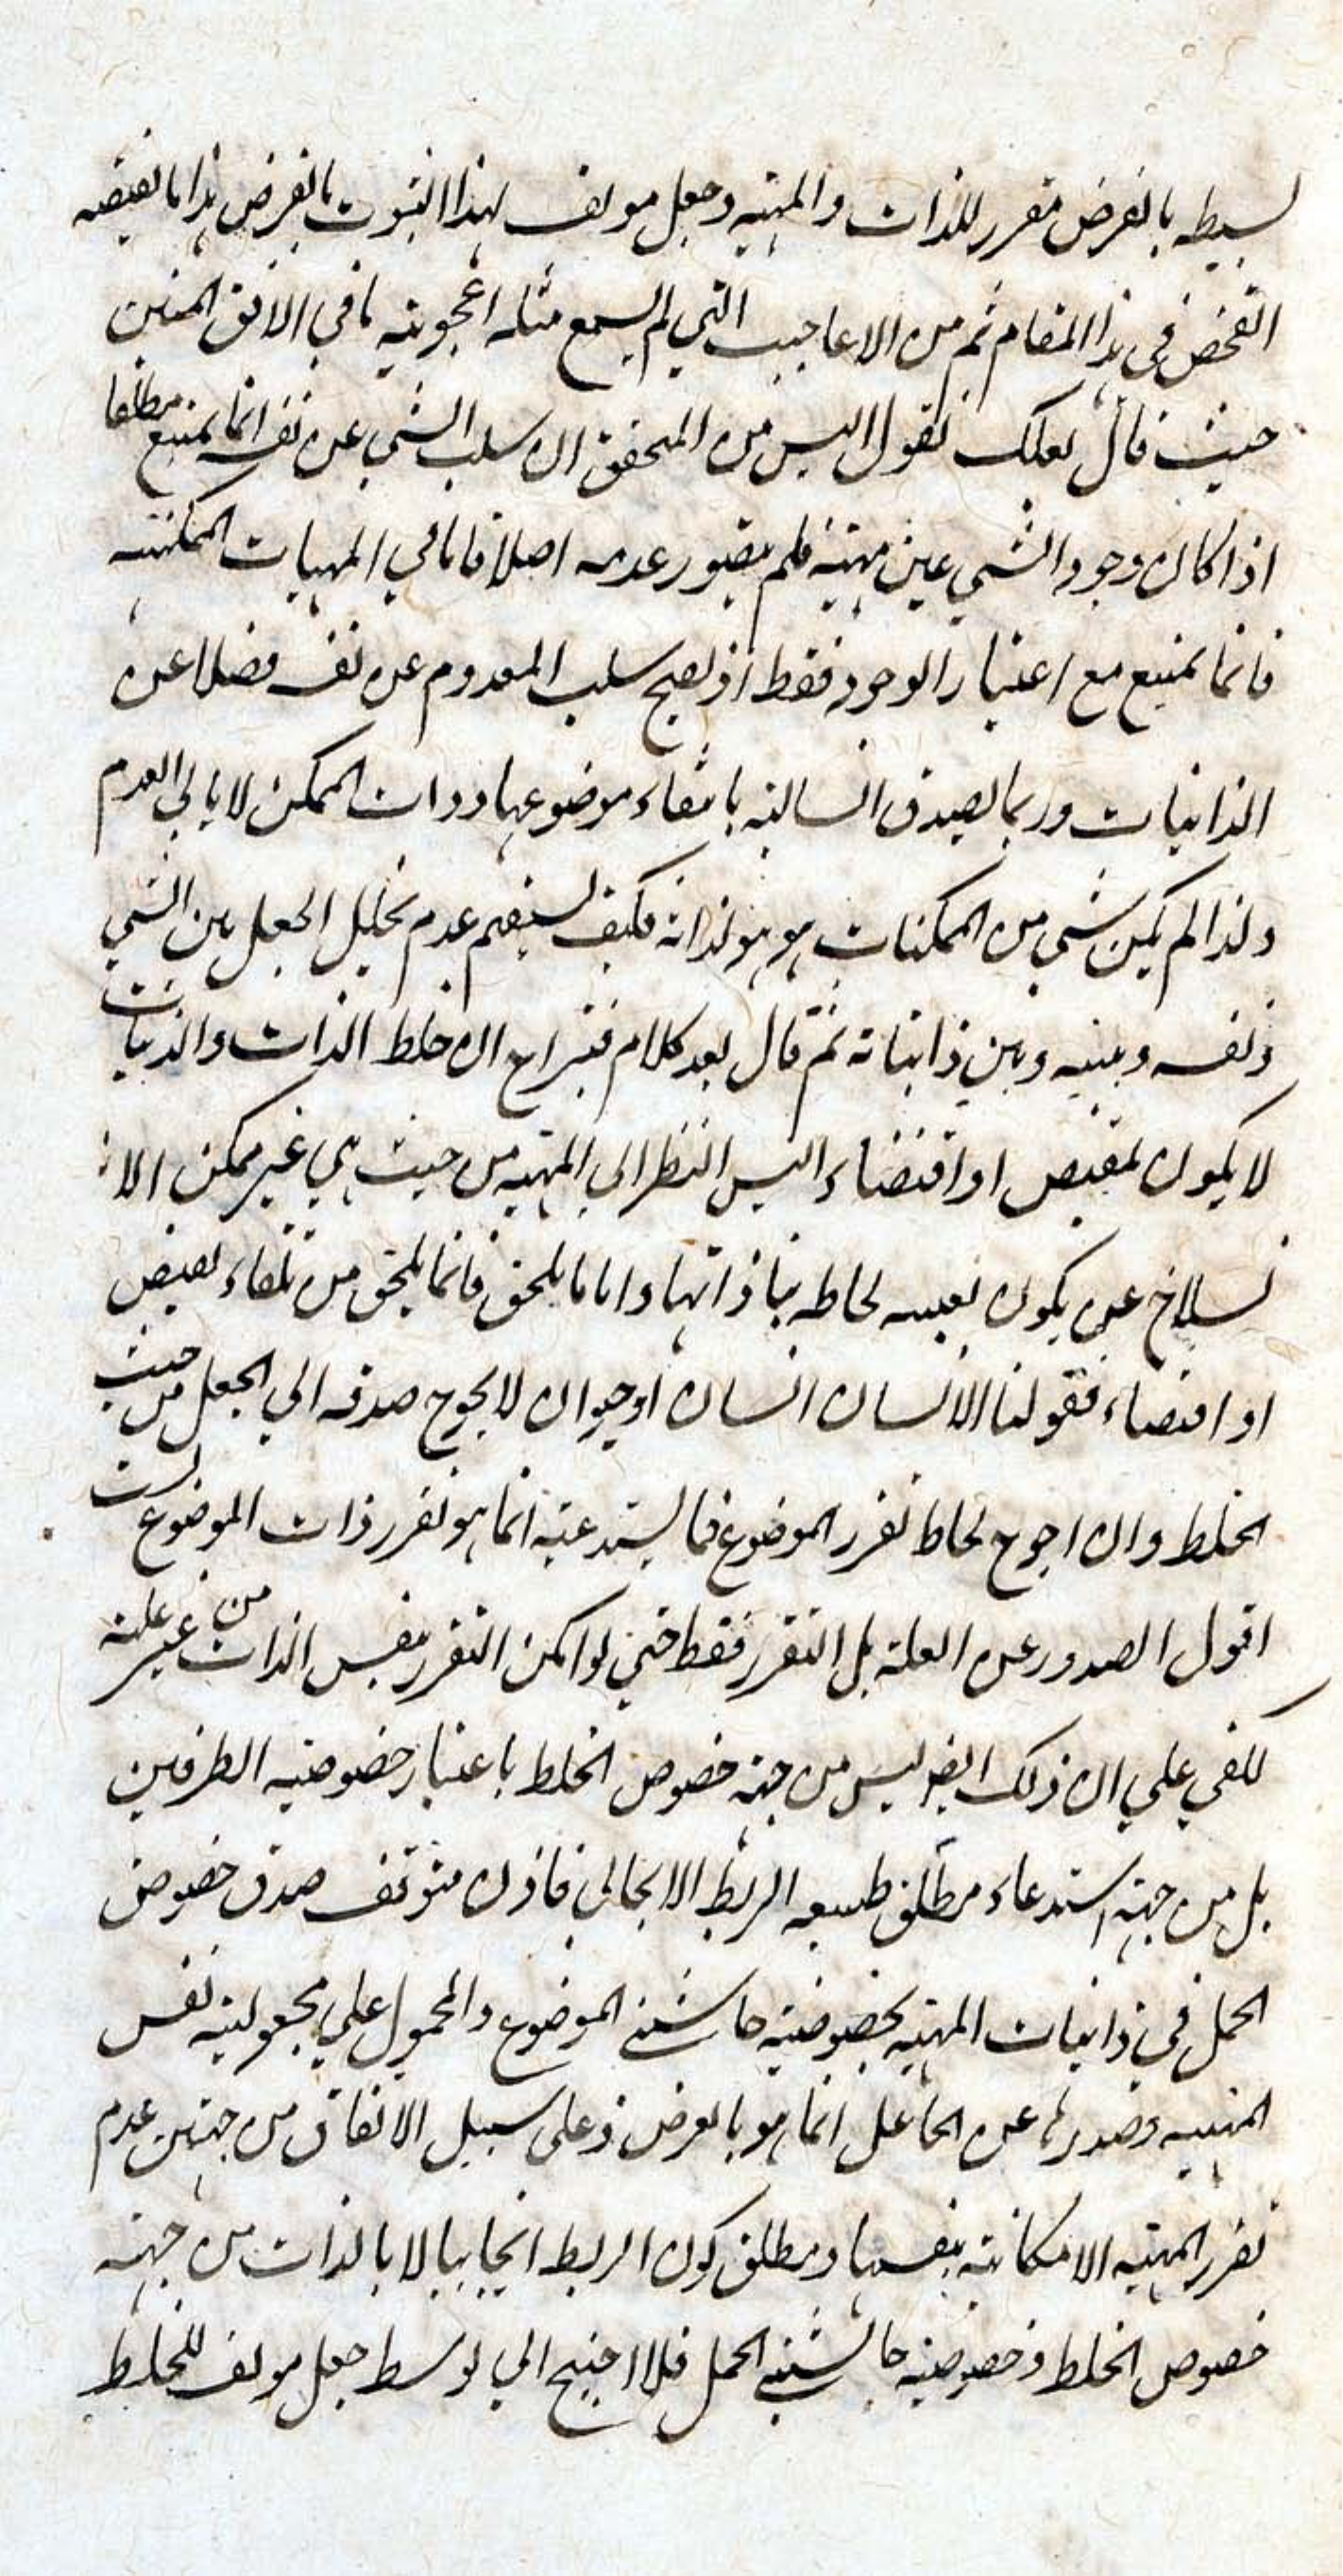 بسيطه بالعرض مقرر للذات والمهيه وجعل مولف لهذا الثبوت بالعرض هذا ما يقتضيه
الفحص في هذا المقام ثم من الاعاجيب التي لم يسمع مثله اعجوبة ما في الافق المبين
حيث قال لعلك تقول اليس من المحقق ان سلب الشي عن نفسه انما يمتنع مطلقا
اذا كان وجود الشي عين مهيته فلم يتصور عدمه اصلا فاما في المهيات الممكنه
فانما يمتنع مع اعتبار الوجود فقط اذ يصح سلب المعدوم عن نفسه فضلا عن
الذاتيات وربما يصدق السالبة بانتفاء موضوعها وذات الممكن لا يابي العدم
ولذا لم يكن شي من الممكنات هو هو لذاته فكيف يستقيم عدم تخليل الجعل بين الشي
ونفسه وبينه وبين ذاتياته ثم قال بعد كلام فيراح ان خلط الذات والذاتيات
لا يكون لمقتض او اقتضاء اليس النظر الي المهيه من حيث هي غير ممكن الا
نسلاخ عن يكون بعينه لحاظه بتا ذاتها واما ما يلحق فانما يلحق من تلقاء مقتض
او اقتضاء فقولنا الانسان انسان او حيوان لا يحوج صدقه الي الجعل من حيث
الخلط وان احوج لحاظ تقرر الموضوع فما يستدعيه انما هو تقرر ذات الموضوع لست
اقول الصدور عن العلة بل التقرر فقط حتي لو امكن التقرر بنفس الذات من غير علة
لكفي علي ان ذلك ايضا ليس من جهة خصوص الخلط باعتبار خصوصيه الطرفين
بل من جهة استدعاء مطلق طبيعه الربط الايجابي فاذن متوقف صدق خصوص
الحمل في ذاتيات المهيه بخصوصية حاشيتي الموضوع والمحمول علي مجعولية نفس
المهيه وصدورها عن الجاعل انما هو بالعرض وعلي سبيل الاتفاق من جهتين عدم
تقرر المهيه الامكانية بنفسها ومطلق كون الربط ايجابيا لا بالذات من جهة
خصوص الخلط وخصوصية حاشيتي الحمل فلا احتيج الي توسط جعل مولف للخلط